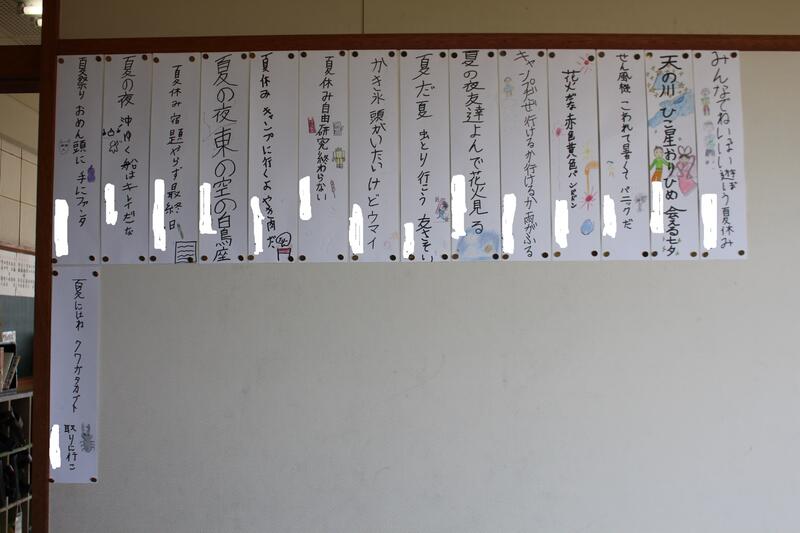 みんなでね いっぱい遊ぼう 夏休み
天の川 ひこ星おりひめ 会える七夕
せん風機 こわれて暑くて パニックだ
花火だな 赤色黄色
キャンプがぜ 行けるか行けるか 雨がふる
夏の夜 友達よんで 花火見る
夏だ夏 虫とり行こう 友さそい
かき氷 頭がいたい けどウマイ
夏休み 自由研究 終わらない
夏休み キャンプに行くよ やき肉だ
夏の夜 東の空の 白鳥座
夏休み 宿題やらず 最終日
夏の夜 沖ゆく船は キレイだな
夏祭り おめん頭に 手にファンタ
夏にはね クワガタカブト 取りに行こ